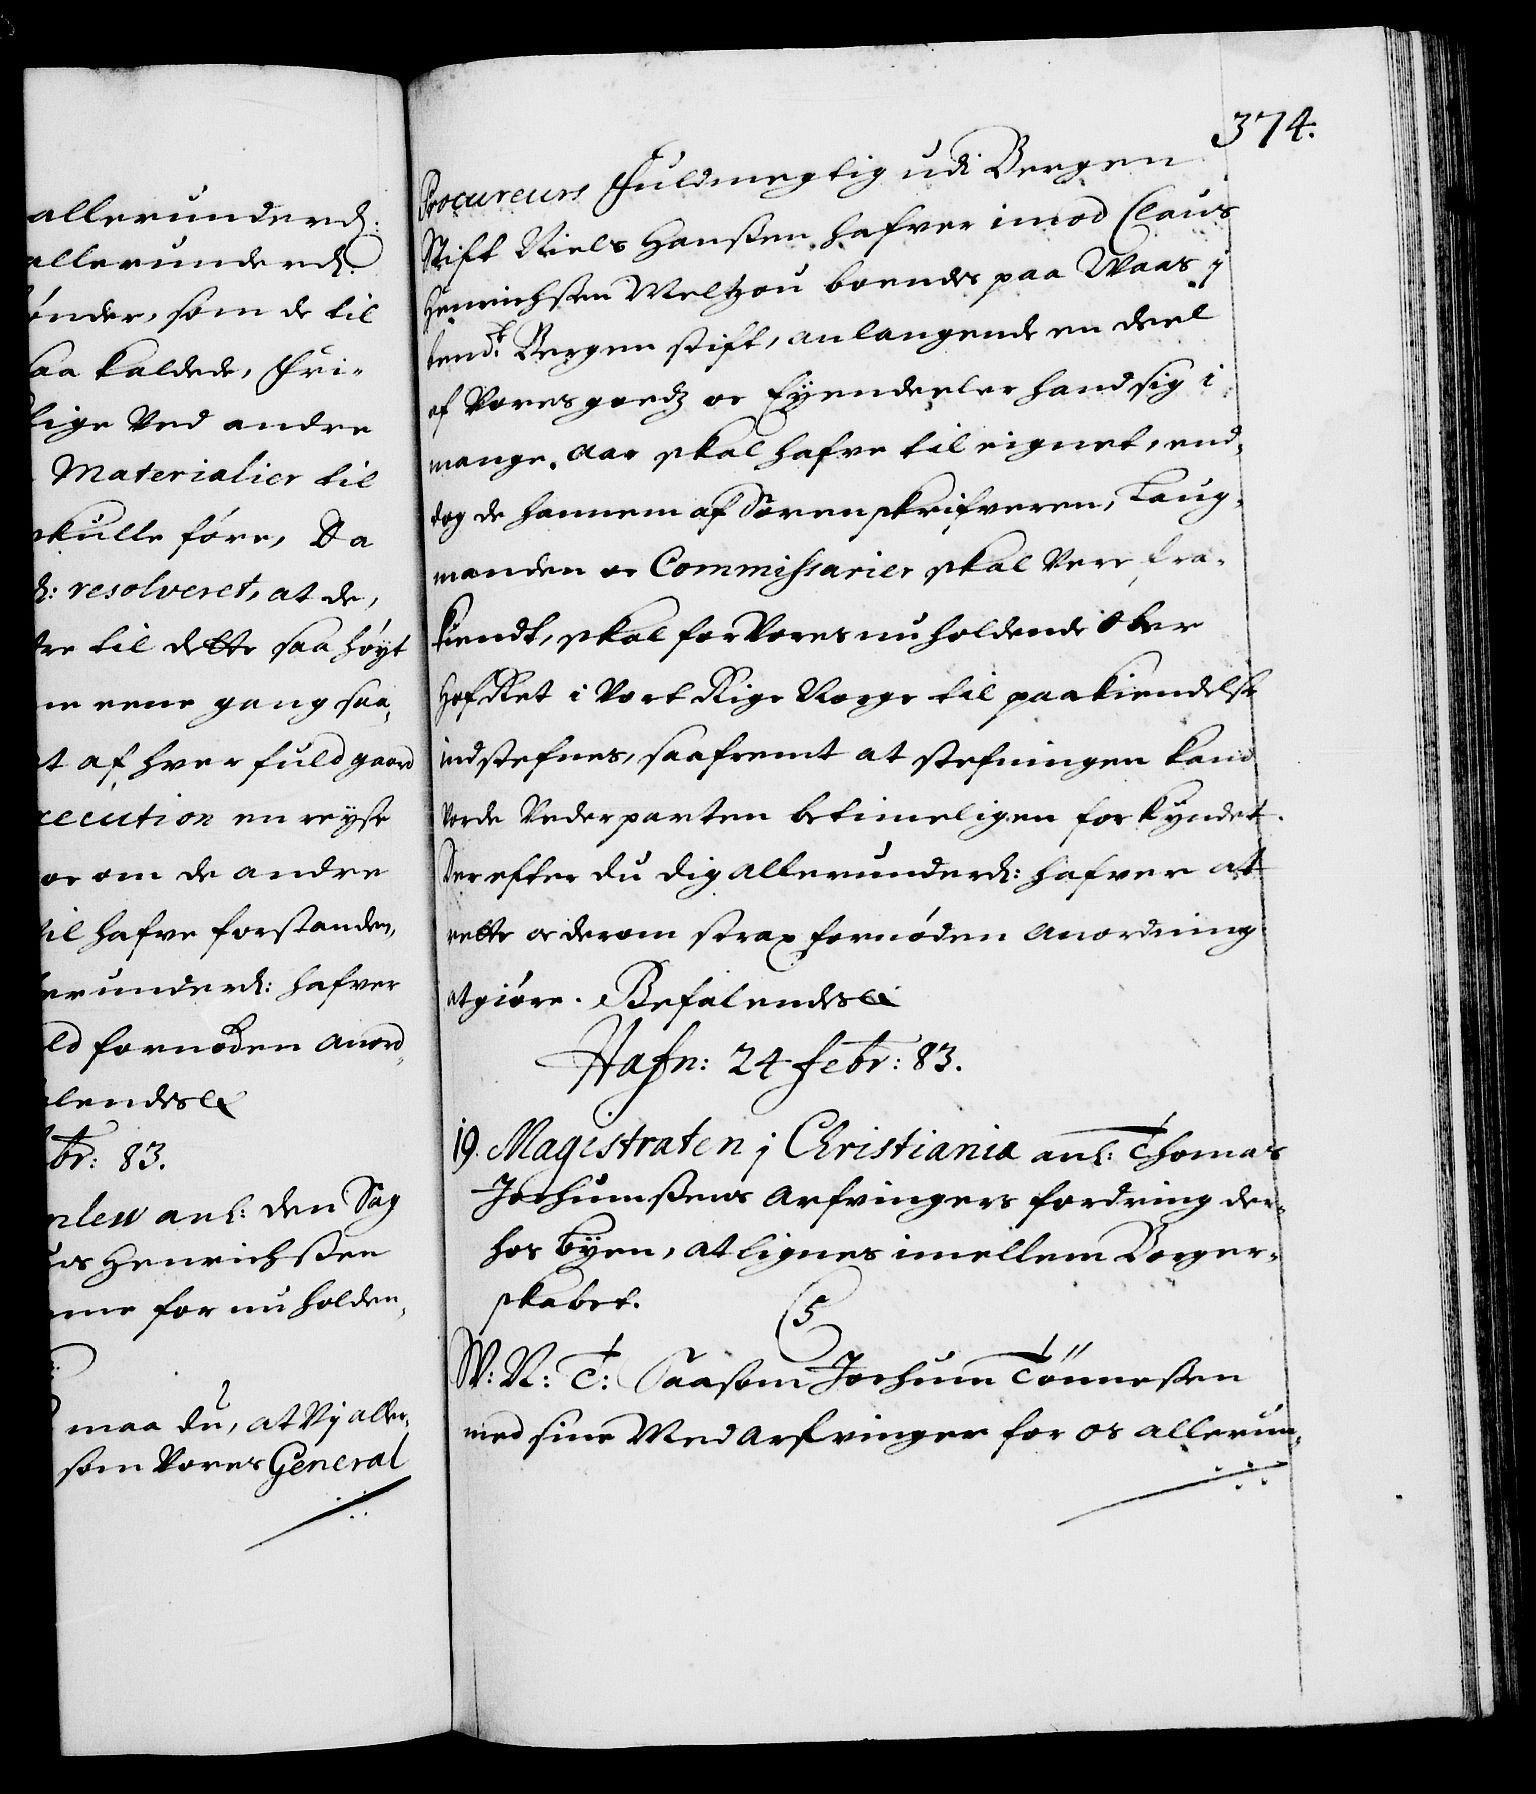 allerunderd:
allerunderd:
ønder, som de til
saa kaldede, Fri-
lige Ved andre
Materialier til
skulle føre, Da
d: resolveret, at de,
dre til dette saa høyt
ne eene gang saa,
t af hver fuld gaard
xecution en reyse
oc om de andre
til hafve forstanden,
erunderd: hafver
ld fornøden anord-
lendes &
br: 83.
nlew anl: den Sag
us Henrichssen
nne for nu holden-
maa du, at Vj aller-
som Vores General
374.
Procureurs Fuldmegtig udi Bergen
Stift Niels Hanssen hafver imod Claus
Henrichssen Meltzou boendes paa Waas j
bemt. Bergen stift, anlangende en deel
af Vores goedz oc Eyendeeler hand sig i
mange aar skal hafve til eignet, end-
dog de hannem af Sorenskrifveren, Laug-
manden oc Commissarier skal Vere fra-
kiendt, skal for Vores nu holdende Ober
Hof Ret i Vort Rige Norge til paakiendelse
indstefnes, saafremt at stefningen kand
Vorde Vederparten betimeligen forkyndet.
Derefter du dig allerunderd: hafver at
rette oc derom strax fornøden anordning
at giøre. Befalendes &
Hafn: 24 febr: 83.
19. Magistraten j Christiania anl: Thomas
Jochumssens Arfvingers fordring der-
hos byen, at lignes imellem Borger-
skabet.
C5
W: N: T: Saasom Jochum Tönnessen
med sine Med Arfvinger for os allerun-